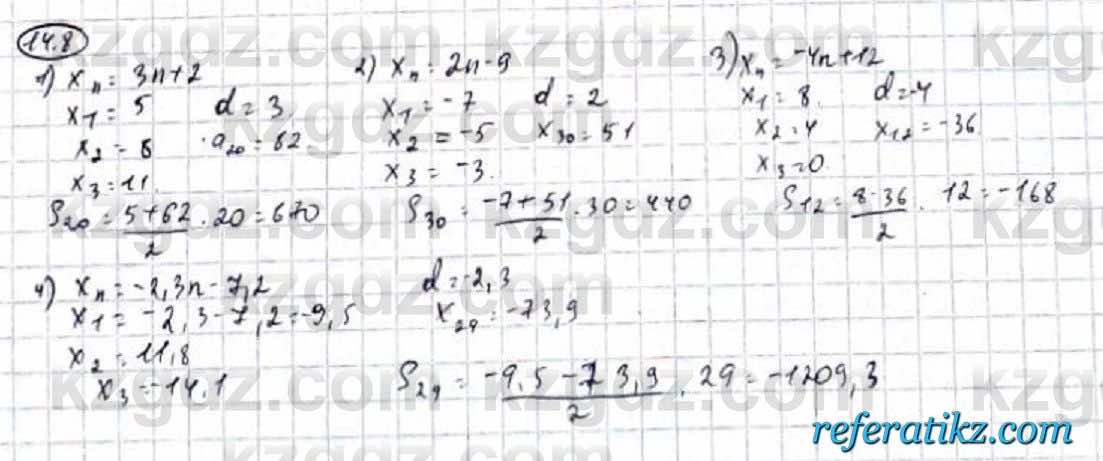 14.8
1) xₙ = 3n+2
x₁ = 5 d = 3
x₂ = 8 a₂₀ = 62
x₃ = 11.
S₂₀ = (5+62)/2 · 20 = 670
2) xₙ = 2n-9
x₁ = -7 d = 2
x₂ = -5 x₃₀ = 51
x₃ = -3.
S₃₀ = (-7+51)/2 · 30 = 440
3) xₙ = -4n+12
x₁ = 8. d = -4
x₂ = 4 x₁₂ = -36
x₃ = 0.
S₁₂ = (8-36)/2 · 12 = -168
4) xₙ = -2,3n-7,2 d = -2,3
x₁ = -2,3-7,2 = -9,5 x₂₉ = -73,9
x₂ = 11,8
x₃ = -14,1
S₂₉ = (-9,5-73,9)/2 · 29 = -1209,3
kzgdz.com
referatikz.com